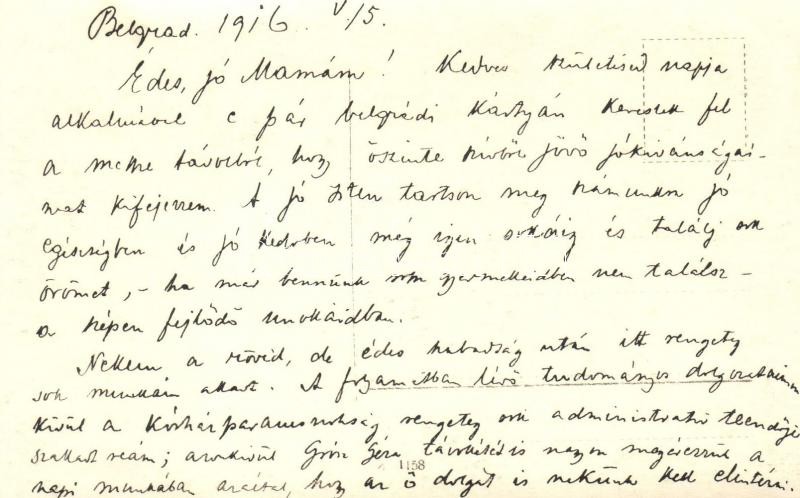 Belgrad. 1916. V./5.
Édes, jó Mamám! Kedves születésed napja
alkalmával e pár belgrádi kártyán kereslek fel
a messze távolból, hogy őszinte szívből jövő jókívánságai-
mat kifejezzem. A jó Isten tartson meg számunkra jó
egészségben és jó kedvben még igen sokáig és találj sok
örömet, – ha már bennünk gyermekeidben nem találsz –
a szépen fejlődő unokáidban.
Nekem a rövid, de édes szabadság után itt rengeteg
sok munkám akadt. A folyamatban lévő tudományos
kívül a Kórházparancsnokság rengeteg sok administrativ teendője
szakadt reám; azonkívül Grósz Géza távollétét is nagyon megérezzük a
napi munkában azáltal, hogy az ő dolgát is nekünk kell elintézni.
1158